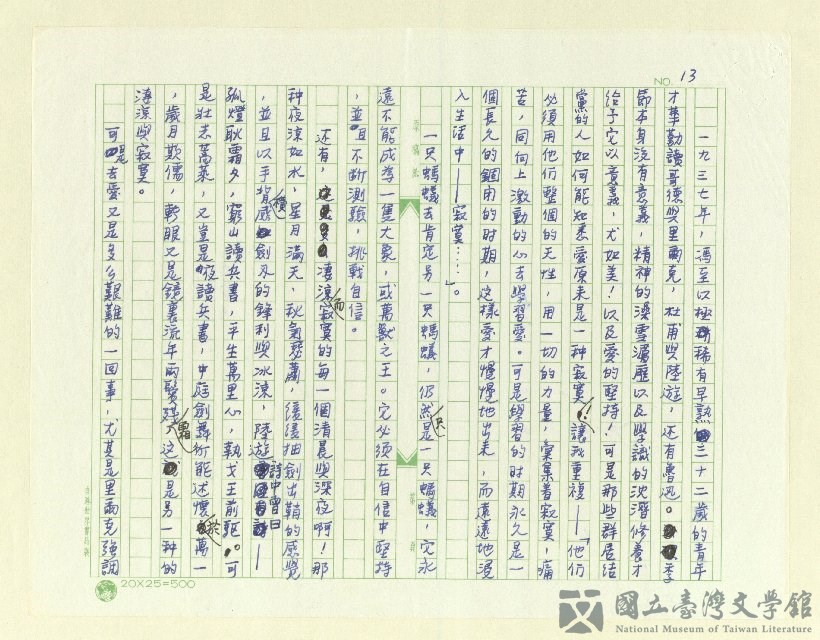 NO. 13
一九三七年，馮至以極稀有早熟三十二歲的青年
才華勤讀哥德與里爾克，杜甫與陸游，還有魯迅。季
節本身沒有意義，精神的澡雪濡歷以及學識的沈潛修養才
給予它以意義，尤如美！以及愛的堅持！可是那些群居結
黨的人如何能知悉愛原來是一種寂寞！讓我重複——「他們
必須用他們整個的天性，用一切的力量，彙集着寂寞，痛
苦，同向上激動的心去學習愛。可是學習的時期永久是一
個長久的錮閉的時期，這樣愛才慢慢地出來，而遠遠地浸
入生活中——寂寞……」。
一只螞蟻去肯定另一只螞蟻，仍然只是一只螞蟻，它永
遠不能成為一隻大象，或萬獸之王。它必須在自信中堅持
，並且不斷測驗，挑戰自信。
還有，淒涼而寂寞的每一個清晨與深夜啊！那
種夜涼如水，星月滿天，秋氣蕭，緩緩抽劍出鞘的感覺
，並且以手背感劍刃的鋒利與冰涼，陸游詩中曾曰——
孤燈耿霜夕，窮山讀兵書，平生萬里心，執戈王前驅。可
是壯志蒿萊，又豈是夜讀兵書，中庭劍舞所能述懷於萬一
，歲月欺儂，轉眼又是鏡裏流年兩鬢霜，這是另一種的
淒涼與寂寞。
可是去愛又是多么艱難的一回事，尤其是里爾克強調
20X25=500
國立臺灣文學館
National Museum of Taiwan Literature